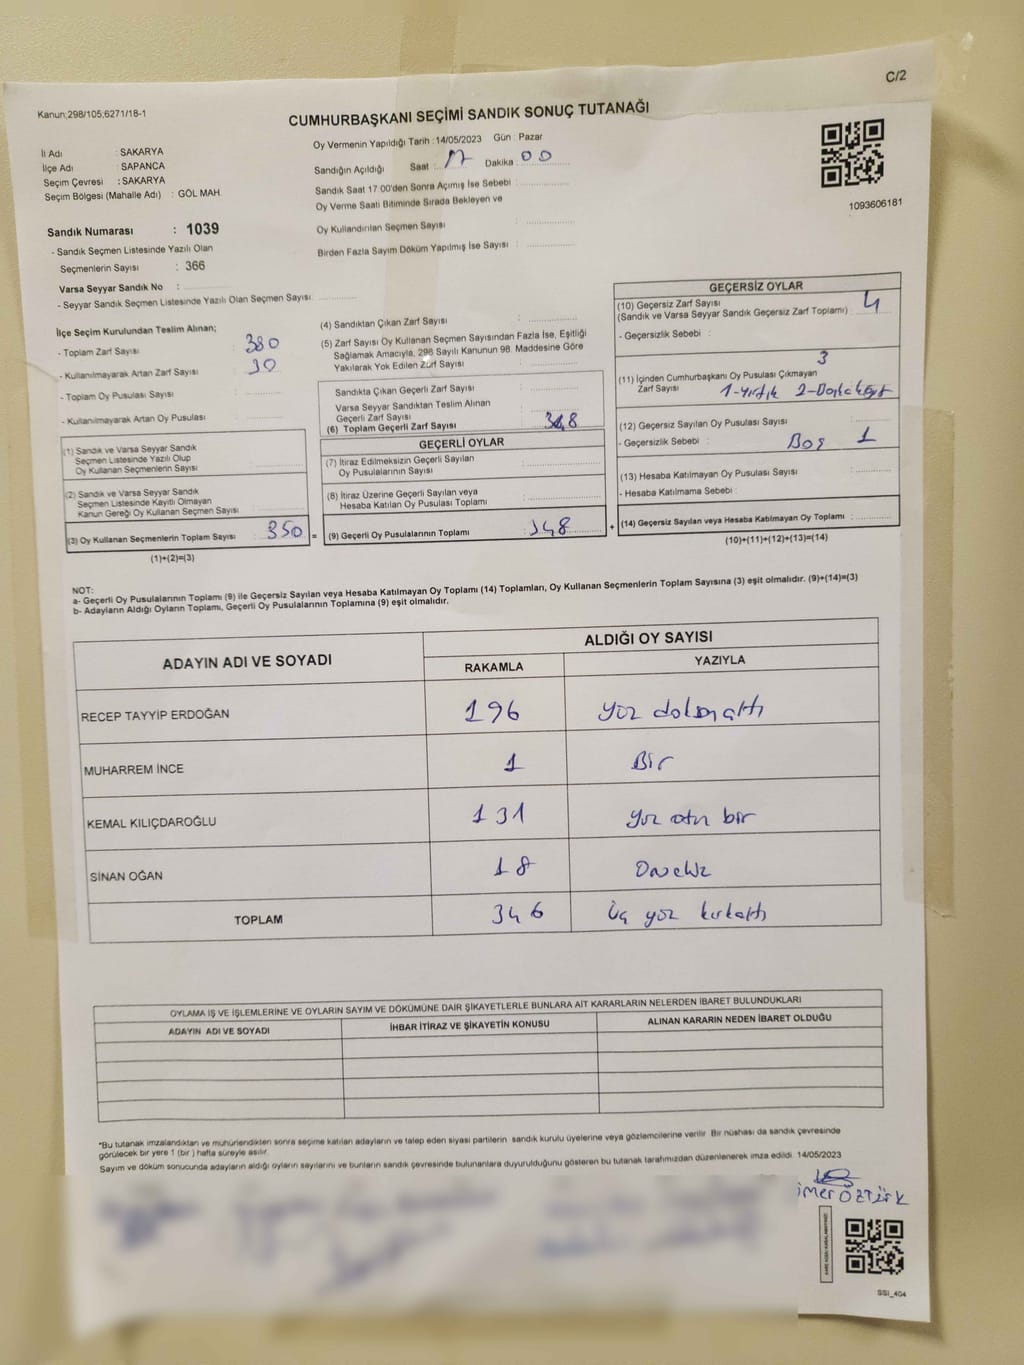 C/2
Kanun;298/105;6271/18-1
CUMHURBAŞKANI SEÇİMİ SANDIK SONUÇ TUTANAĞI
İl Adı : SAKARYA
İlçe Adı : SAPANCA
Seçim Çevresi : SAKARYA
Seçim Bölgesi (Mahalle Adı) : GÖL MAH.
Oy Vermenin Yapıldığı Tarih :14/05/2023 Gün : Pazar
Sandığın Açıldığı Saat : 17 Dakika : 00
Sandık Saat 17:00'den Sonra Açımış İse Sebebi :
Oy Verme Saati Bitiminde Sırada Bekleyen ve
Oy Kullandırılan Seçmen Sayısı :
Birden Fazla Sayım Döküm Yapılmış İse Sayısı :
1093606181
Sandık Numarası : 1039
- Sandık Seçmen Listesinde Yazılı Olan
Seçmenlerin Sayısı : 366
Varsa Seyyar Sandık No :
- Seyyar Sandık Seçmen Listesinde Yazılı Olan Seçmen Sayısı:
İlçe Seçim Kurulundan Teslim Alınan;
- Toplam Zarf Sayısı : 380
- Kullanılmayarak Artan Zarf Sayısı : 30
- Toplam Oy Pusulası Sayısı :
- Kullanılmayarak Artan Oy Pusulası :
(1) Sandık ve Varsa Seyyar Sandık
Seçmen Listesinde Yazılı Olup
Oy Kullanan Seçmenlerin Sayısı :
(2) Sandık ve Varsa Seyyar Sandık
Seçmen Listesinde Kayıtlı Olmayan
Kanun Gereği Oy Kullanan Seçmen Sayısı :
(3) Oy Kullanan Seçmenlerin Toplam Sayısı : 350
(1)+(2)=(3)
=
(4) Sandıktan Çıkan Zarf Sayısı :
(5) Zarf Sayısı Oy Kullanan Seçmen Sayısından Fazla İse, Eşitliği
Sağlamak Amacıyla, 298 Sayılı Kanunun 98. Maddesine Göre
Yakılarak Yok Edilen Zarf Sayısı :
Sandıkta Çıkan Geçerli Zarf Sayısı :
Varsa Seyyar Sandıktan Teslim Alınan
Geçerli Zarf Sayısı :
(6) Toplam Geçerli Zarf Sayısı : 348
GEÇERLİ OYLAR
(7) İtiraz Edilmeksizin Geçerli Sayılan
Oy Pusulalarının Sayısı :
(8) İtiraz Üzerine Geçerli Sayılan veya
Hesaba Katılan Oy Pusulası Toplamı :
(9) Geçerli Oy Pusulalarının Toplamı : 348
+
GEÇERSİZ OYLAR
(10) Geçersiz Zarf Sayısı
(Sandık ve Varsa Seyyar Sandık Geçersiz Zarf Toplamı) : 4
- Geçersizlik Sebebi :
3
(11) İçinden Cumhurbaşkanı Oy Pusulası Çıkmayan
Zarf Sayısı 1-Yırtık
(12) Geçersiz Sayılan Oy Pusulası Sayısı :
- Geçersizlik Sebebi : Boş 1
(13) Hesaba Katılmayan Oy Pusulası Sayısı :
- Hesaba Katılmama Sebebi :
(14) Geçersiz Sayılan veya Hesaba Katılmayan Oy Toplamı :
(10)+(11)+(12)+(13)=(14)
NOT:
a- Geçerli Oy Pusulalarının Toplamı (9) ile Geçersiz Sayılan veya Hesaba Katılmayan Oy Toplamı (14) Toplamları, Oy Kullanan Seçmenlerin Toplam Sayısına (3) eşit olmalıdır. (9)+(14)=(3)
b- Adayların Aldığı Oyların Toplamı, Geçerli Oy Pusulalarının Toplamına (9) eşit olmalıdır.
ADAYIN ADI VE SOYADI
ALDIĞI OY SAYISI
RAKAMLA YAZIYLA
RECEP TAYYİP ERDOĞAN 196 yüz doksan altı
MUHARREM İNCE 1 Bir
KEMAL KILIÇDAROĞLU 131 yüz otuz bir
SİNAN OĞAN 18 Onsekiz
TOPLAM 346 Üç yüz kırkaltı
OYLAMA İŞ VE İŞLEMLERİNE VE OYLARIN SAYIM VE DÖKÜMÜNE DAİR ŞİKAYETLERLE BUNLARA AİT KARARLARIN NELERDEN İBARET BULUNDUKLARI
ADAYIN ADI VE SOYADI İHBAR İTİRAZ VE ŞİKAYETİN KONUSU ALINAN KARARIN NEDEN İBARET OLDUĞU
*Bu tutanak imzalandıktan ve mühürlendikten sonra seçime katılan adayların ve talep eden siyasi partilerin sandık kurulu üyelerine veya gözlemcilerine verilir. Bir nüshası da sandık çevresinde
görülecek bir yere 1 (bir) hafta süreyle asılır.
Sayım ve döküm sonucunda adayların aldığı oyların sayılarını ve bunların sandık çevresinde bulunanlara duyurulduğunu gösteren bu tutanak tarafımızdan düzenlenerek imza edildi. 14/05/2023
ÖZTÜRK
SSI_404